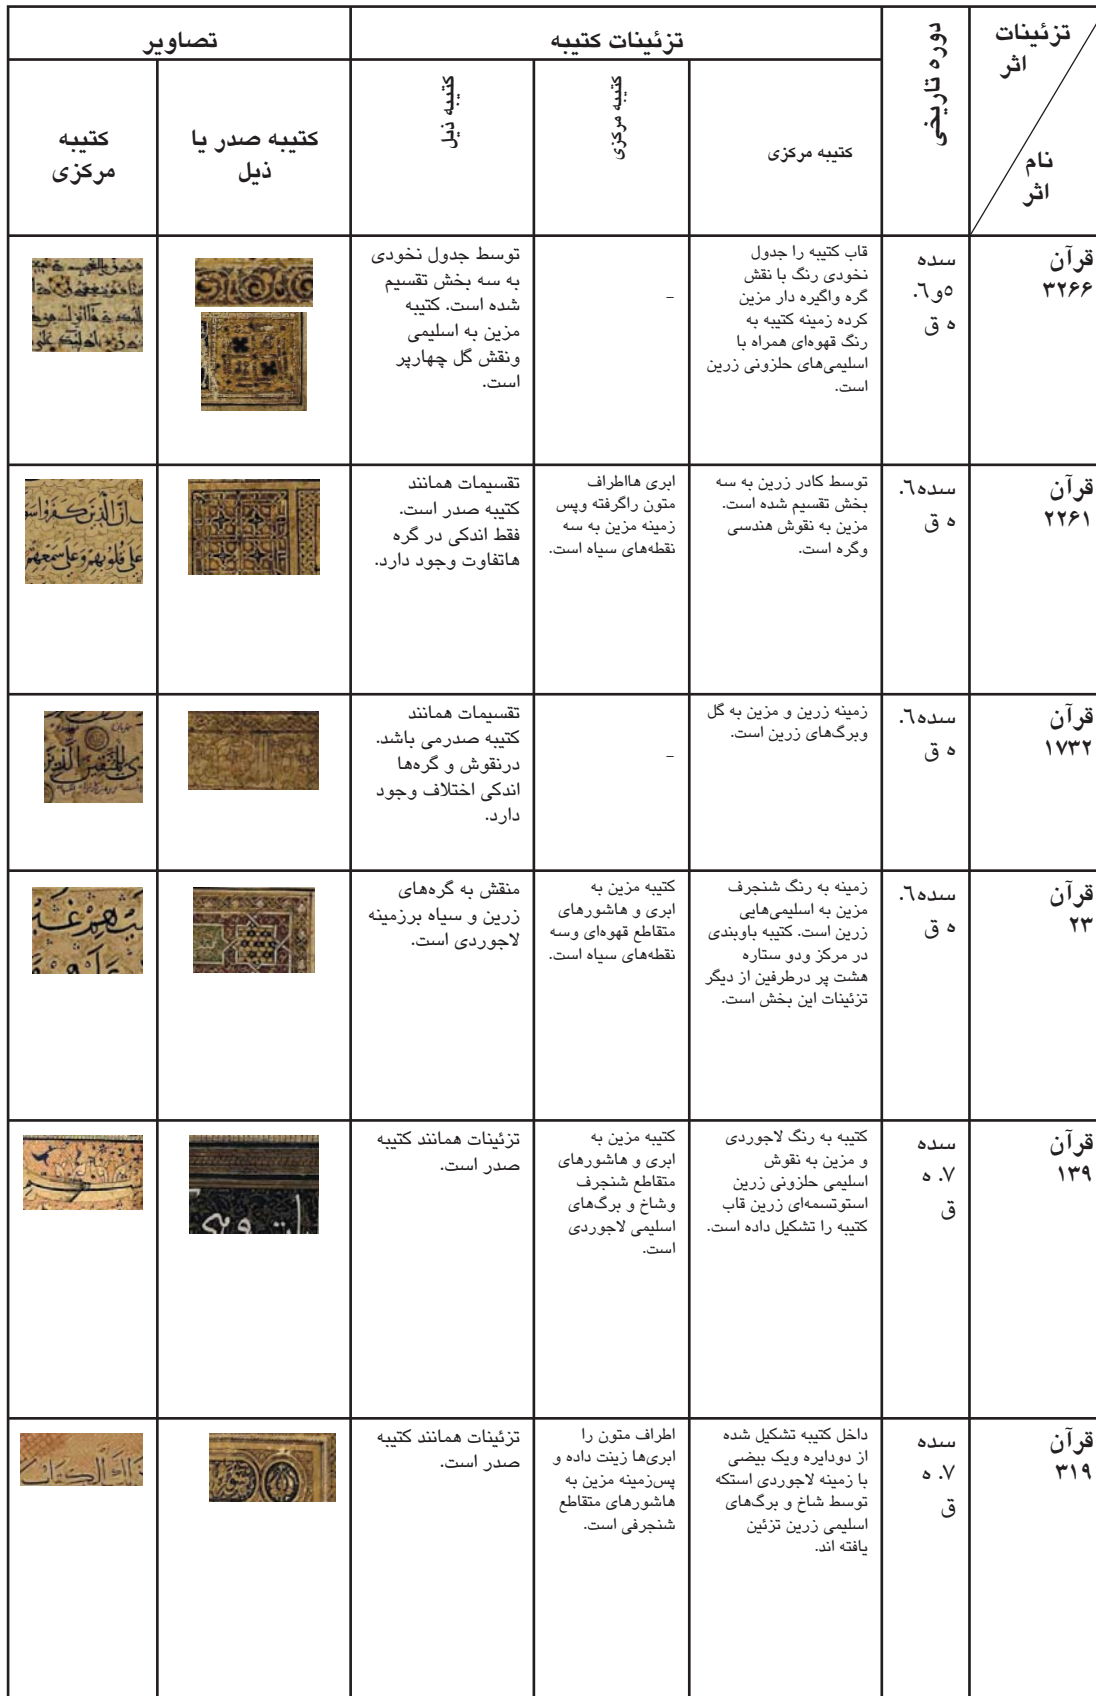 تزئینات
اثر
نام
اثر
دوره تاریخی
تزئینات کتیبه
تصاویر
کتیبه مرکزی
کتیبه مرکزی
کتیبه ذیل
کتیبه صدر یا
ذیل
کتیبه
مرکزی
قرآن
۳۲۶۶
سده
۵و۶.
ه ق
قاب کتیبه را جدول
نخودی رنگ با نقش
گره واگیره دار مزین
کرده زمینه کتیبه به
رنگ قهوه‌ای همراه با
اسلیمی‌های حلزونی زرین
است.
–
توسط جدول نخودی
به سه بخش تقسیم
شده است. کتیبه
مزین به اسلیمی
ونقش گل چهارپر
است.
قرآن
۲۲۶۱
سده۶.
ه ق
توسط کادر زرین به سه
بخش تقسیم شده است.
مزین به نقوش هندسی
وگره است.
ابری هااطراف
متون راگرفته وپس
زمینه مزین به سه
نقطه‌های سیاه است.
تقسیمات همانند
کتیبه صدر است.
فقط اندکی در گره
هاتفاوت وجود دارد.
قرآن
۱۷۳۲
سده۶.
ه ق
زمینه زرین و مزین به گل
وبرگ‌های زرین است.
–
تقسیمات همانند
کتیبه صدرمی باشد.
درنقوش و گره‌ها
اندکی اختلاف وجود
دارد.
قرآن
۲۳
سده۶.
ه ق
زمینه به رنگ شنجرف
مزین به اسلیمی‌هایی
زرین است. کتیبه باوبندی
در مرکز ودو ستاره
هشت پر درطرفین از دیگر
تزئینات این بخش است.
کتیبه مزین به
ابری و هاشورهای
متقاطع قهوه‌ای وسه
نقطه‌های سیاه است.
منقش به گره‌های
زرین و سیاه برزمینه
لاجوردی است.
قرآن
۱۳۹
سده
۷. ه
ق
کتیبه به رنگ لاجوردی
و مزین به نقوش
اسلیمی حلزونی زرین
استوتسمه‌ای زرین قاب
کتیبه را تشکیل داده است.
کتیبه مزین به
ابری و هاشورهای
متقاطع شنجرف
وشاخ و برگ‌های
اسلیمی لاجوردی
است.
تزئینات همانند کتیبه
صدر است.
قرآن
۳۱۹
سده
۷. ه
ق
داخل کتیبه تشکیل شده
از دودایره ویک بیضی
با زمینه لاجوردی استکه
توسط شاخ و برگ‌های
اسلیمی زرین تزئین
یافته اند.
اطراف متون را
ابری‌ها زینت داده و
پس‌زمینه مزین به
هاشورهای متقاطع
شنجرفی است.
تزئینات همانند کتیبه
صدر است.